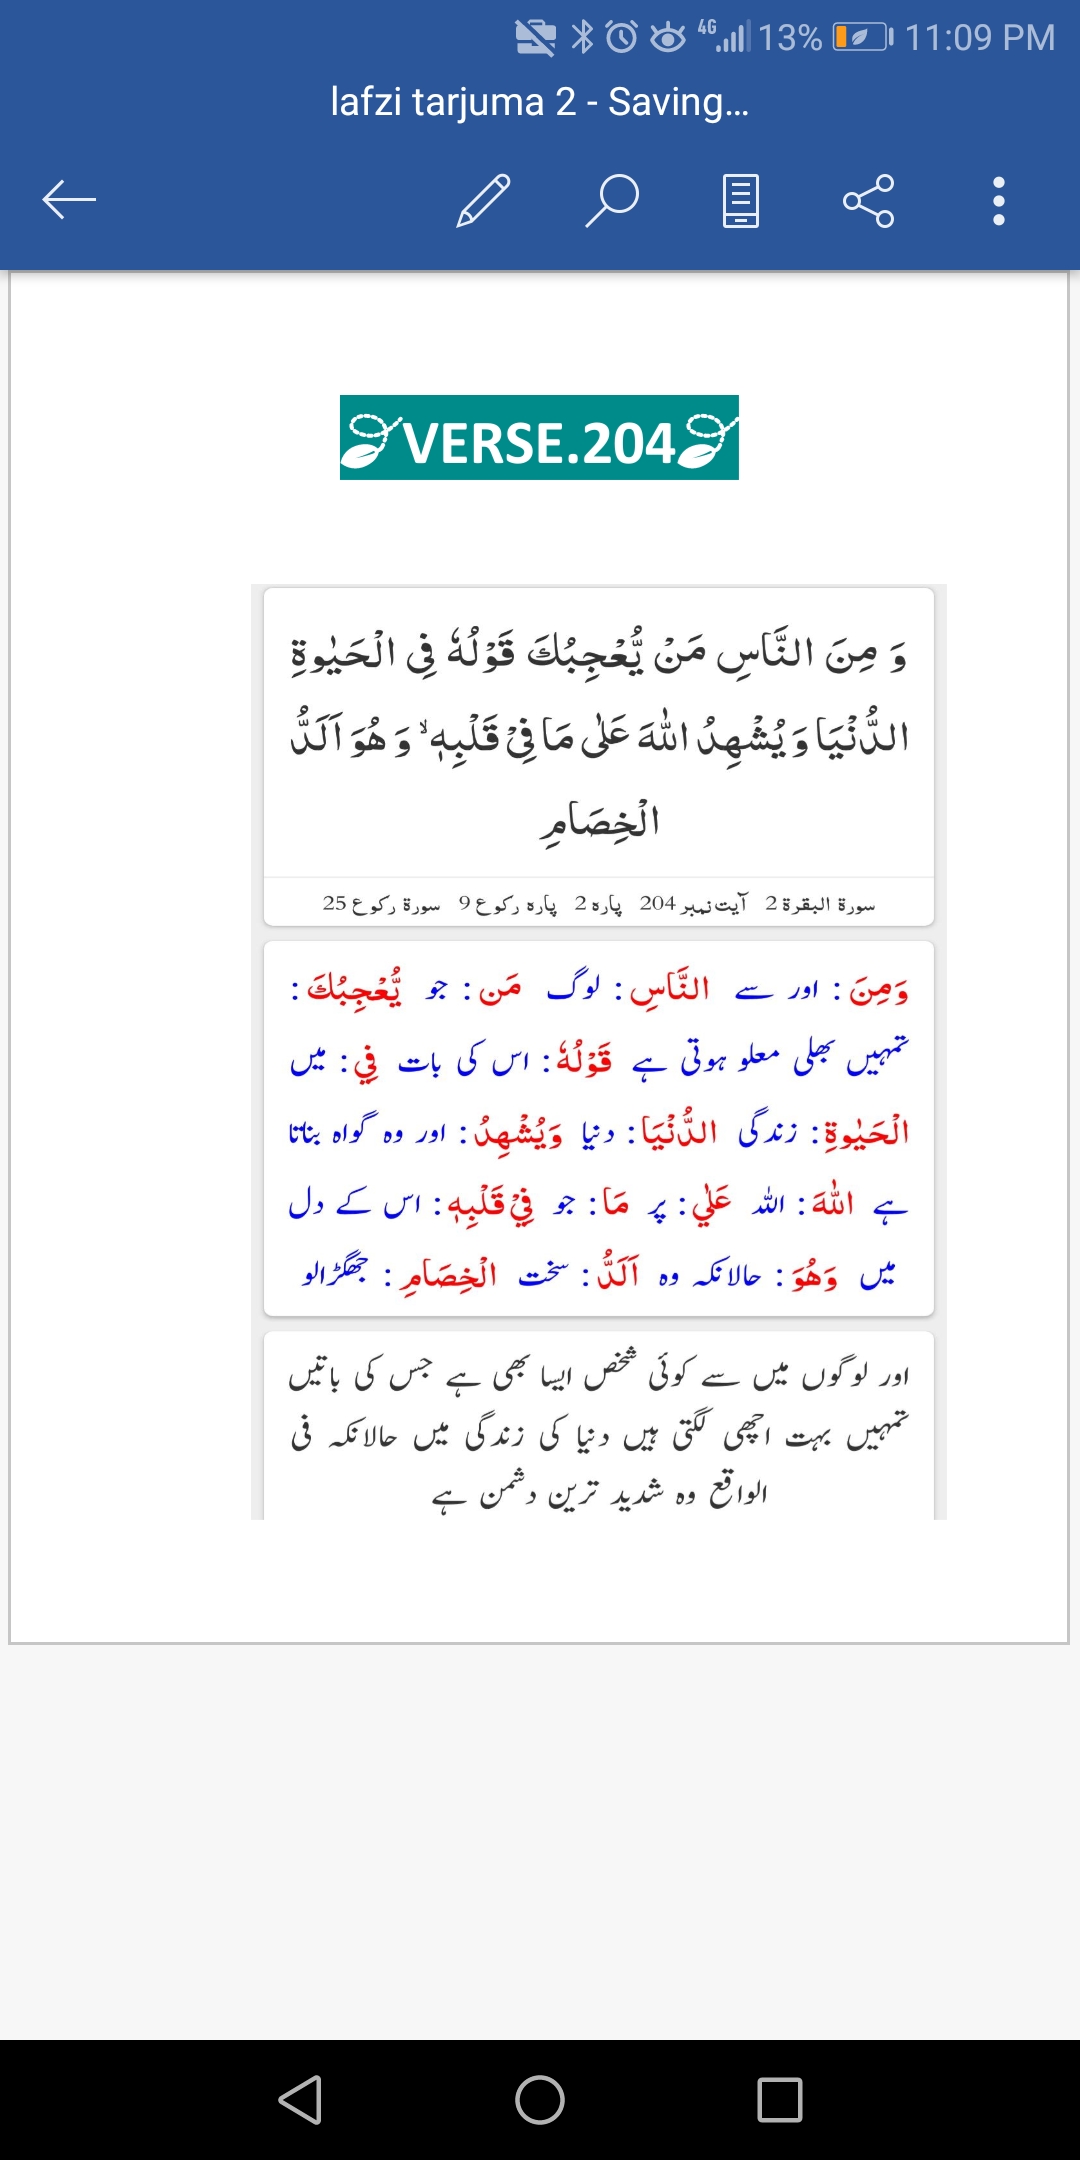 4G 13% 11:09 PM
lafzi tarjuma 2 - Saving...
VERSE.204
وَ مِنَ النَّاسِ مَنْ يُّعْجِبُكَ قَوْلُهٗ فِى الْحَيٰوةِ
الدُّنْيَا وَ يُشْهِدُ اللّٰهَ عَلٰى مَا فِىْ قَلْبِهٖ ۙ وَ هُوَ اَلَدُّ
الْخِصَامِ
سورة البقرة 2 آیت نمبر 204 پاره 2 پاره رکوع 9 سورة رکوع 25
وَمِنَ : اور سے النَّاسِ : لوگ مَن : جو يُّعْجِبُكَ :
تمہیں بھلی معلو ہوتی ہے قَوْلُهٗ : اس کی بات فِي : میں
الْحَيٰوةِ : زندگی الدُّنْيَا : دنیا وَيُشْهِدُ : اور وہ گواہ بناتا
ہے اللّٰهَ : اللہ عَلٰي : پر مَا : جو فِيْ قَلْبِهٖ : اس کے دل
میں وَھُوَ : حالانکہ وہ اَلَدُّ : سخت الْخِصَامِ : جھگڑالو
اور لوگوں میں سے کوئی شخص ایسا بھی ہے جس کی باتیں
تمہیں بہت اچھی لگتی ہیں دنیا کی زندگی میں حالانکہ فی
الواقع وہ شدید ترین دشمن ہے